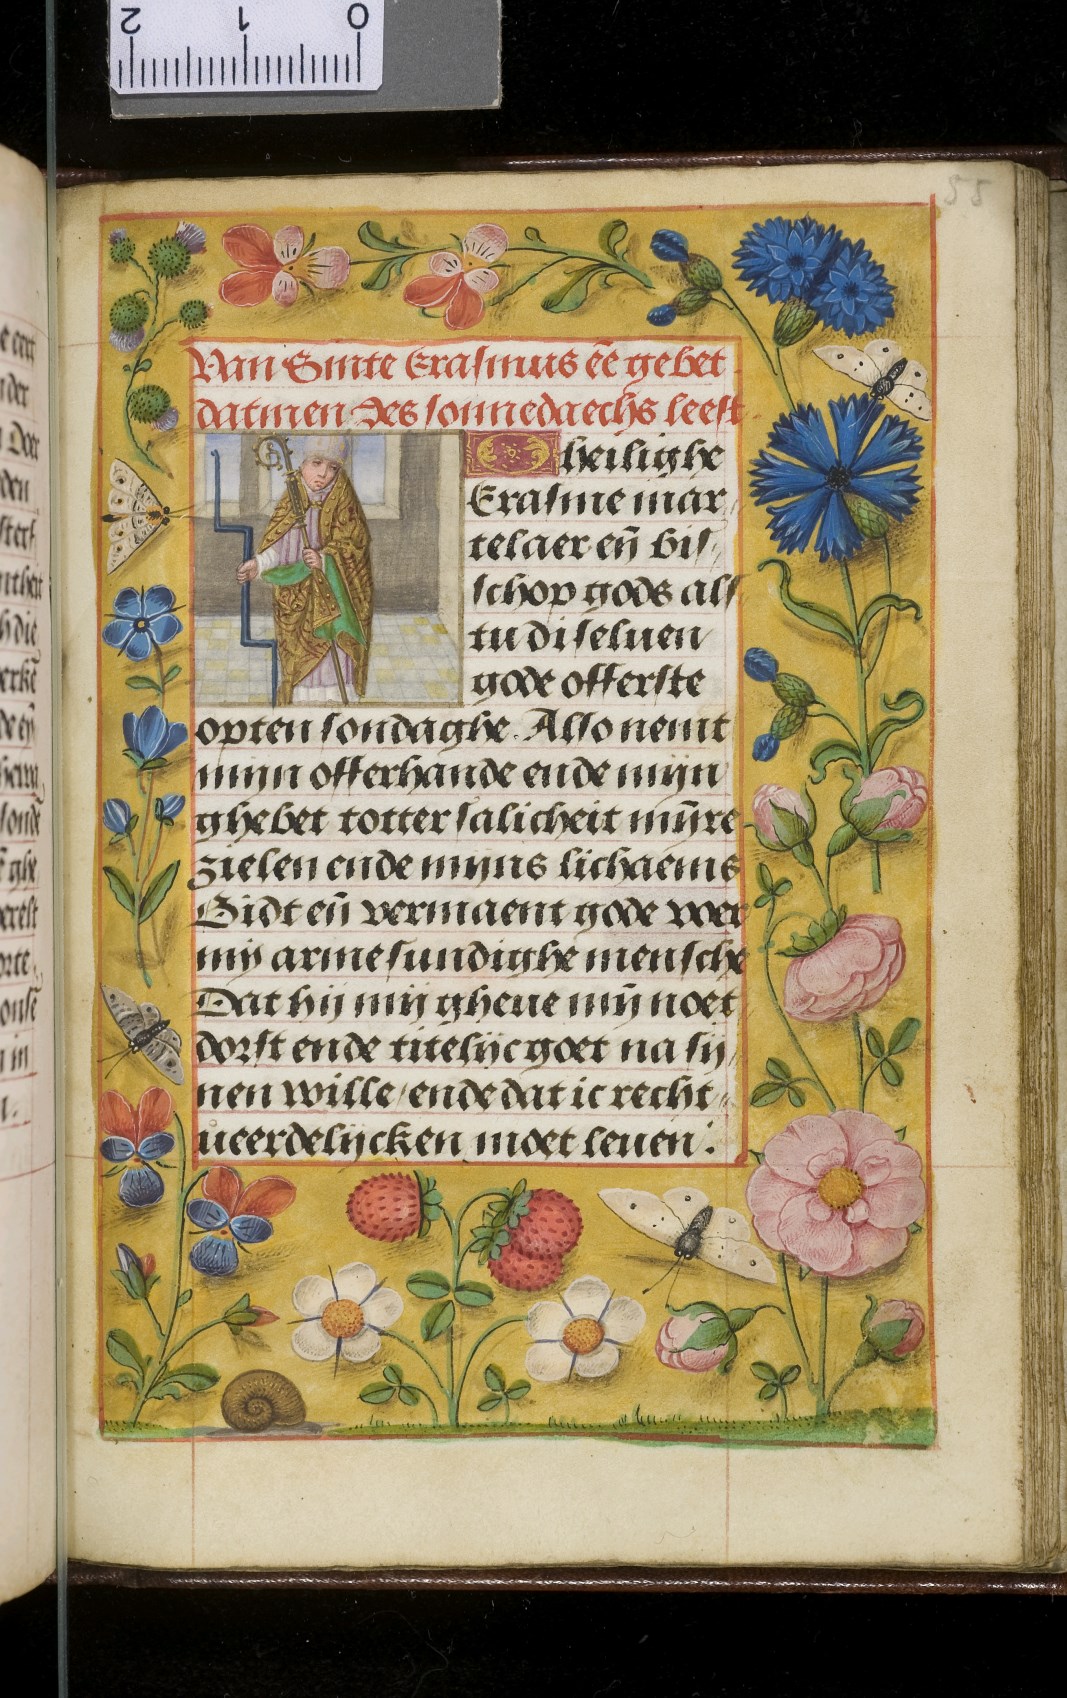 2 1 0
55
Van Sinte Erasmus eē gebet
datmen des sonnedaechs leest
O heilighe
Erasme mar
telaer eñ bis
schop gods als
tu di seluen
gode offerste
opten sondaghe. Also nemt
mijn offerhande ende mijn
ghebet totter salicheit mijre
zielen ende mijns lichaems
Bidt eñ vermaent gode voer
mij arme sundighe mensche
Dat hij mij gheue mijn noet
dorst ende titelijc goet na sij
nen wille / ende dat ic recht
ueerdelijcken moet leuen.